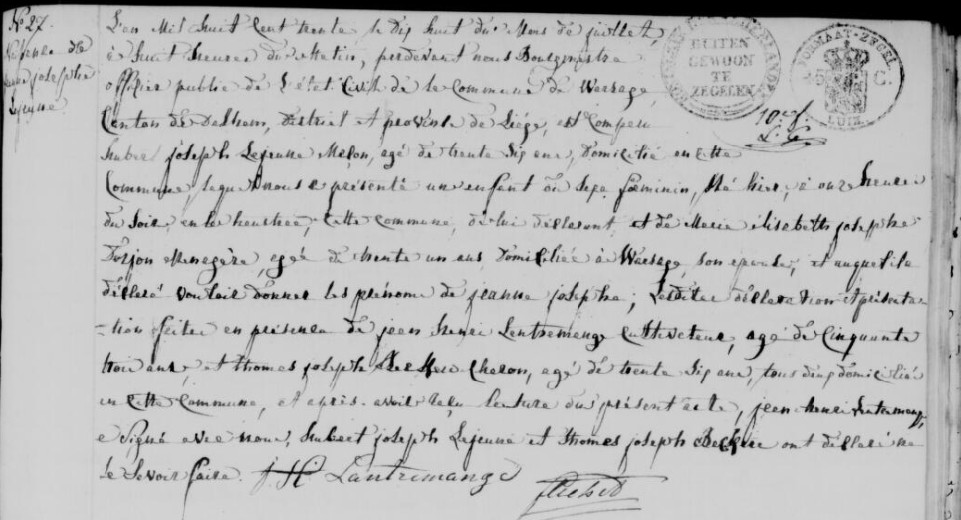 N° 27.
Naissance de
Jeanne josephe
Lejeune
L'an Mil huit Cent trente le dix huit du Mois de juillet,
à huit heures du Matin, pardevant nous Bourgmestre
officier public de l'état Civil de la Commune de Warsage,
Canton de Dalhem, District et province de Liége, est Comparu
hubert joseph Lejeune Maçon, agé de trente six ans, Domicilié en cette
Commune, lequel nous a présenté un enfant du sexe fœminin, né hier, à onze heures
du Soir, en cette Commune, de lui déclarant, et de Marie élisabeth josephe
Dorjon Menagère, agée de trente un ans, Domiciliée à Warsage, son epouse, et auquel il a
déclaré vouloir donner les prénoms de jeanne josephe; Lesdites déclaration et présenta
-tion faites en présence de jean henri Lentremange Cultivateur, agé de Cinquante
trois ans et thomas joseph Charon, agé de trente six ans, tous deux domiciliés
en cette Commune, et après avoir reçu lecture du présent acte, jean henri Lentremange,
a signé avec nous, hubert joseph Lejeune et thomas joseph ont déclaré ne
le Savoir faire. J. H. Lantremange
BUITEN
GEWOON
TE
ZEGELEN
FORMAAT-ZEGEL
C.
LUIK